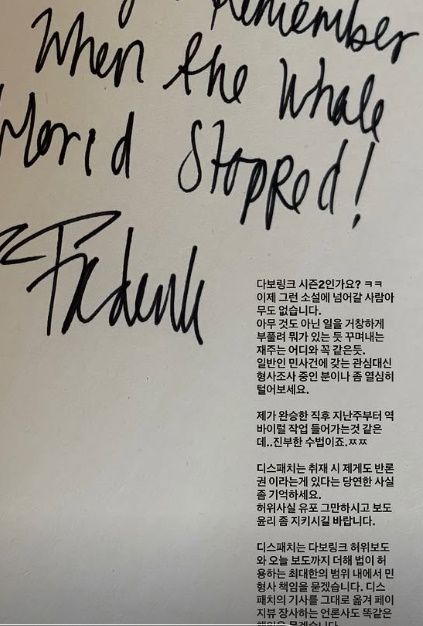 Remember
When the Whole
World Stopped!
다보링크 시즌2인가요? ㅋㅋ
이제 그런 소설에 넘어갈 사람아
무도 없습니다.
아무 것도 아닌 일을 거창하게
부풀려 뭐가 있는 듯 꾸며내는
재주는 어디와 꼭 같은듯.
일반인 민사건에 갖는 관심대신
형사조사 중인 분이나 좀 열심히
털어보세요.
제가 완승한 직후 지난주부터 역
바이럴 작업 들어가는것 같은
데..진부한 수법이죠.ㅉㅉ
디스패치는 취재 시 제게도 반론
권 이라는게 있다는 당연한 사실
좀 기억하세요.
허위사실 유포 그만하시고 보도
윤리 좀 지키시길 바랍니다.
디스패치는 다보링크 허위보도
와 오늘 보도까지 더해 법이 허
용하는 최대한의 범위 내에서 민
형사 책임을 묻겠습니다. 디스
패치의 기사를 그대로 옮겨 페이
지뷰 장사하는 언론사도 똑같은